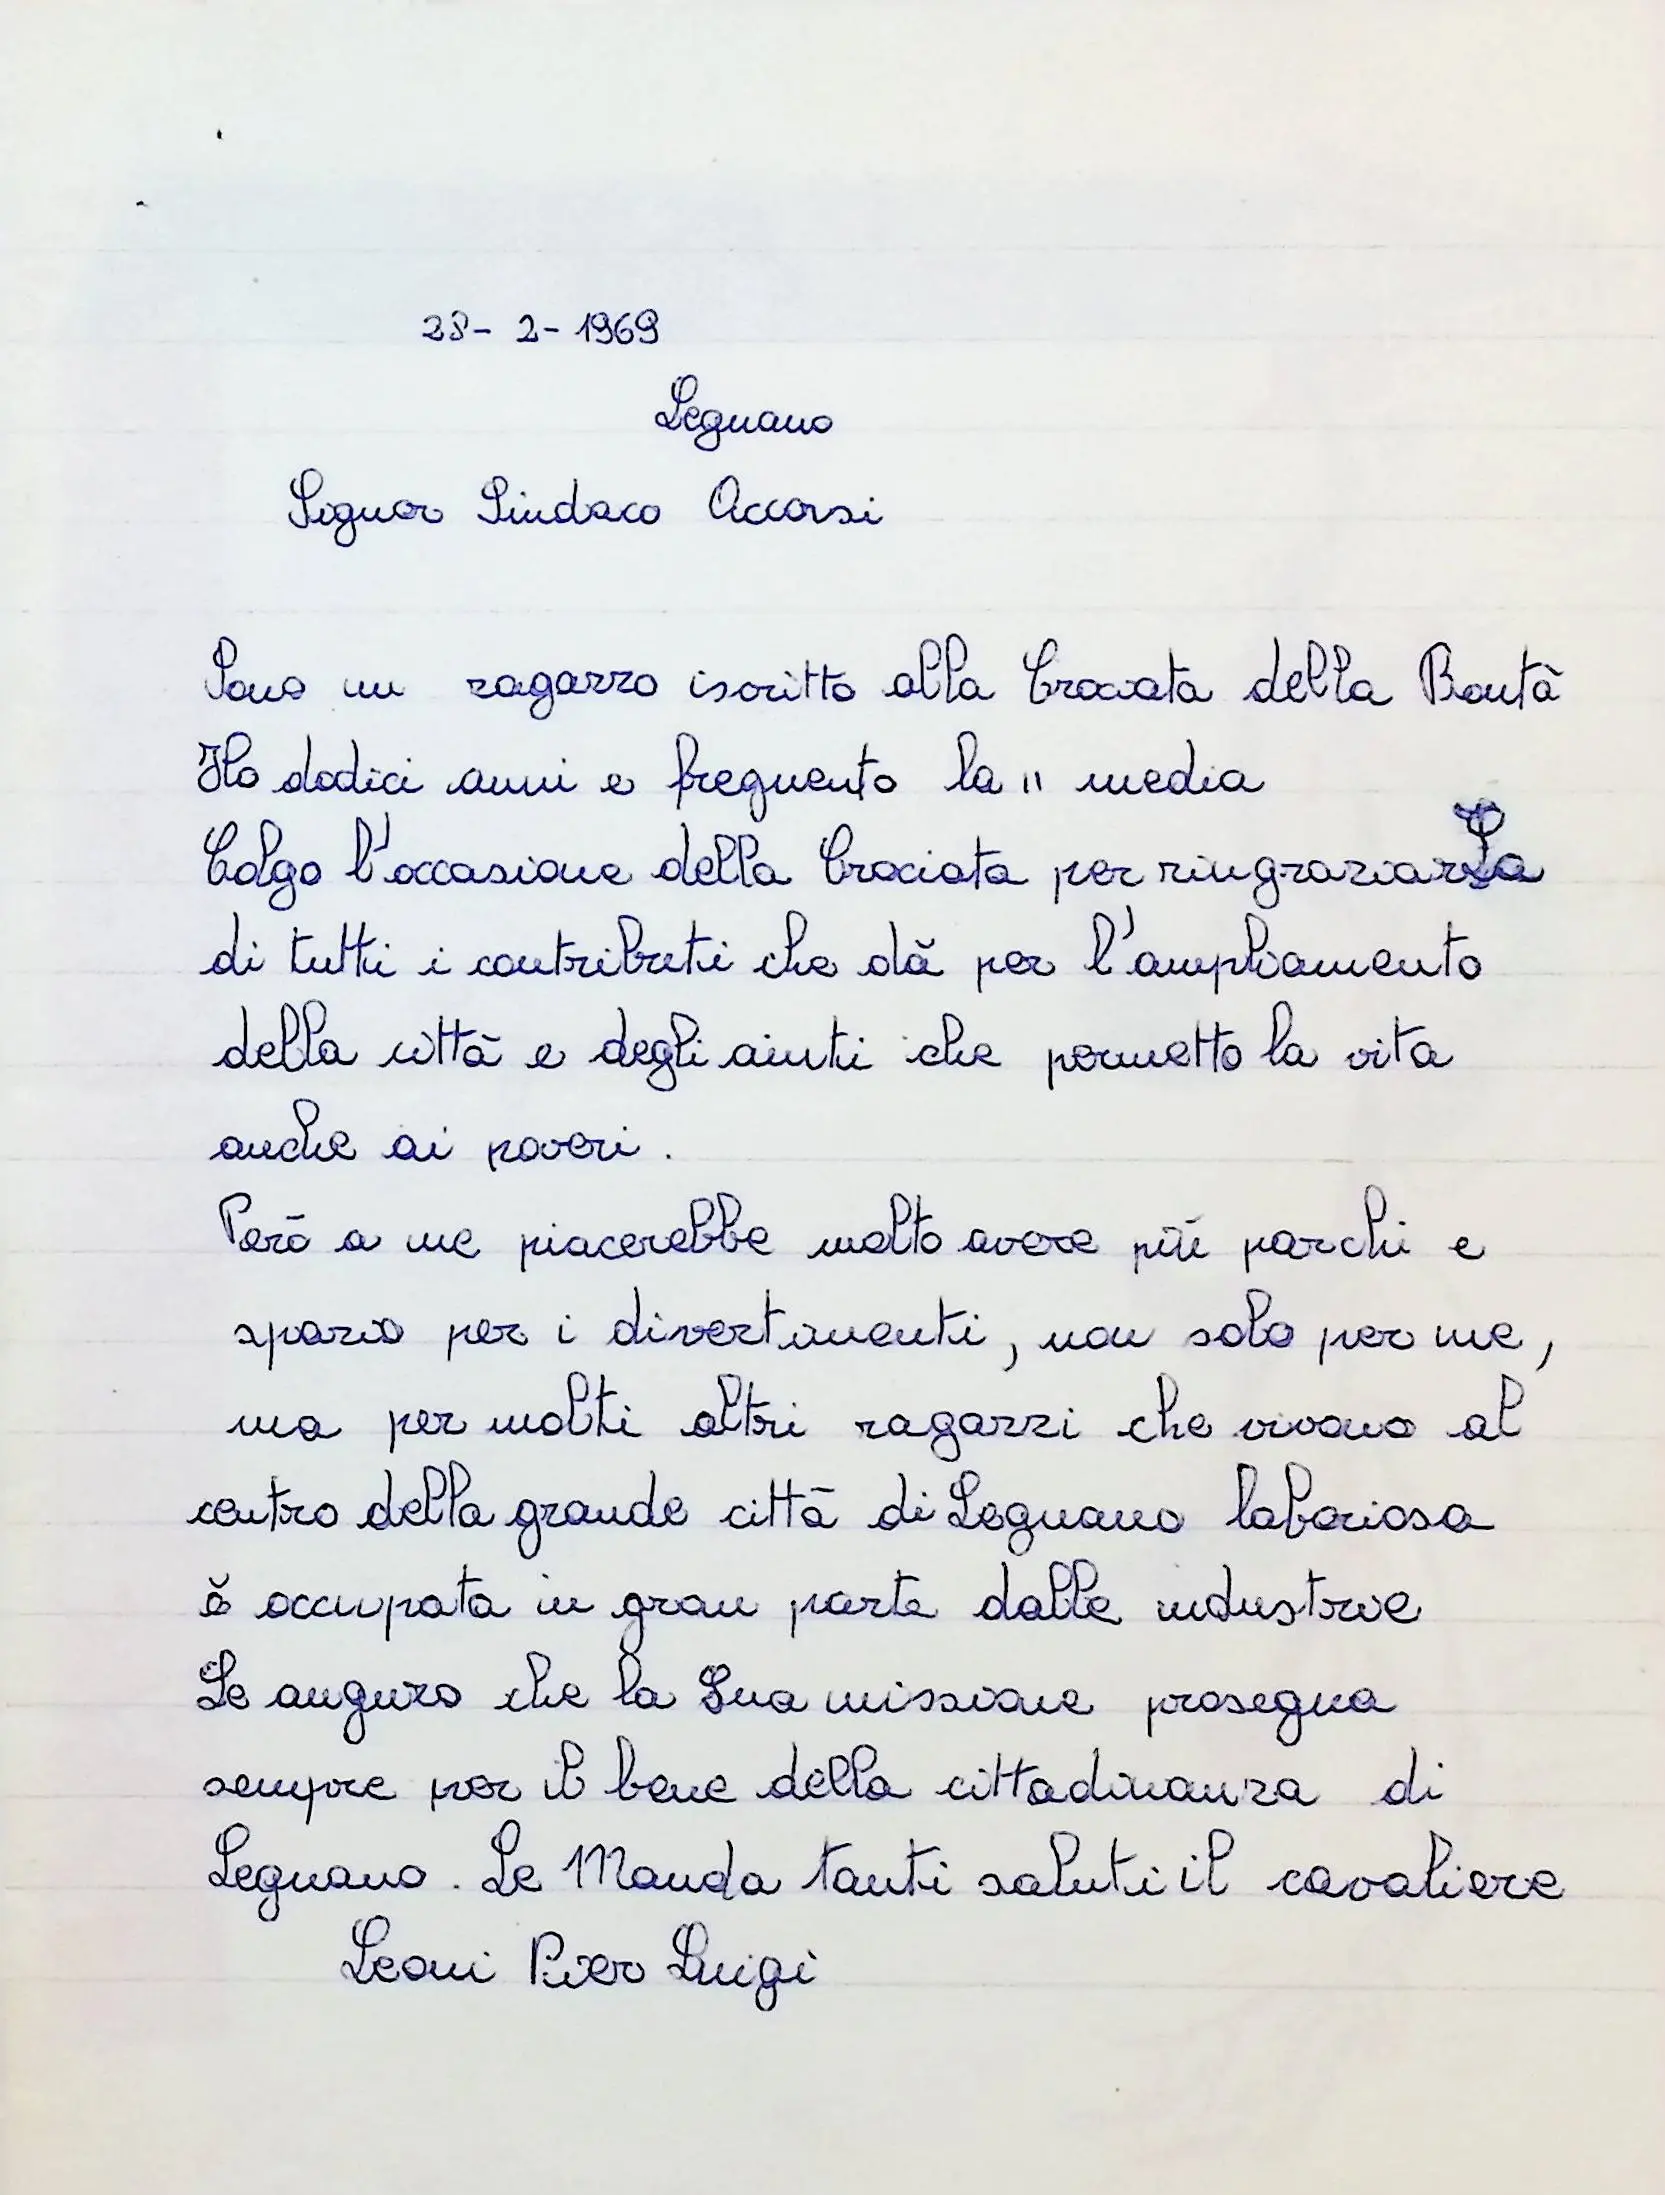 28- 2- 1969
Legnano
Signor Sindaco Accorsi
Sono un ragazzo iscritto alla Crociata della Bontà
Ho dodici anni e frequento la II media
Colgo l'occasione della Crociata per ringraziarLa
di tutti i contributi che dà per l'ampliamento
della città e degli aiuti che permetto la vita
anche ai poveri.
Però a me piacerebbe molto avere più parchi e
spazio per i divertimenti, non solo per me,
ma per molti altri ragazzi che vivono al
centro della grande città di Legnano laboriosa
è occupata in gran parte dalle industrie
Le auguro che la Sua missione prosegua
sempre per il bene della cittadinanza di
Legnano. Le Manda tanti saluti il cavaliere
Leoni Pier Luigi